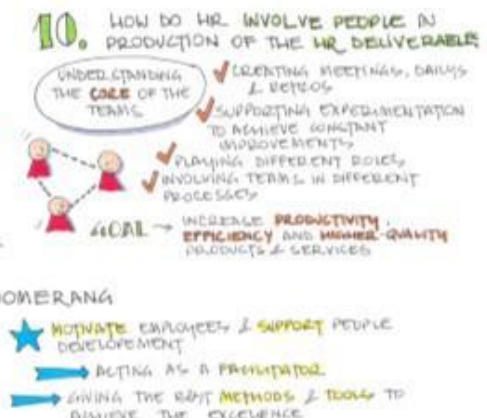 10. HOW DO HR INVOLVE PEOPLE IN
PRODUCTION OF THE HR DELIVERABLES
UNDERSTANDING
THE CORE OF THE
TEAMS
CREATING MEETINGS, DAILYS
& RETROS
SUPPORTING EXPERIMENTATION
TO ACHIEVE CONSTANT
IMPROVEMENTS
PLAYING DIFFERENT ROLES
INVOLVING TEAMS IN DIFFERENT
PROCESSES
GOAL → INCREASE PRODUCTIVITY,
EFFICIENCY AND HIGHER-QUALITY
PRODUCTS & SERVICES
OMERANG
MOTIVATE EMPLOYEES & SUPPORT PEOPLE
DEVELOPEMENT
ACTING AS A FACILITATOR
GIVING THE BEST METHODS & TOOLS TO
ACHIEVE THE EXCELENCE